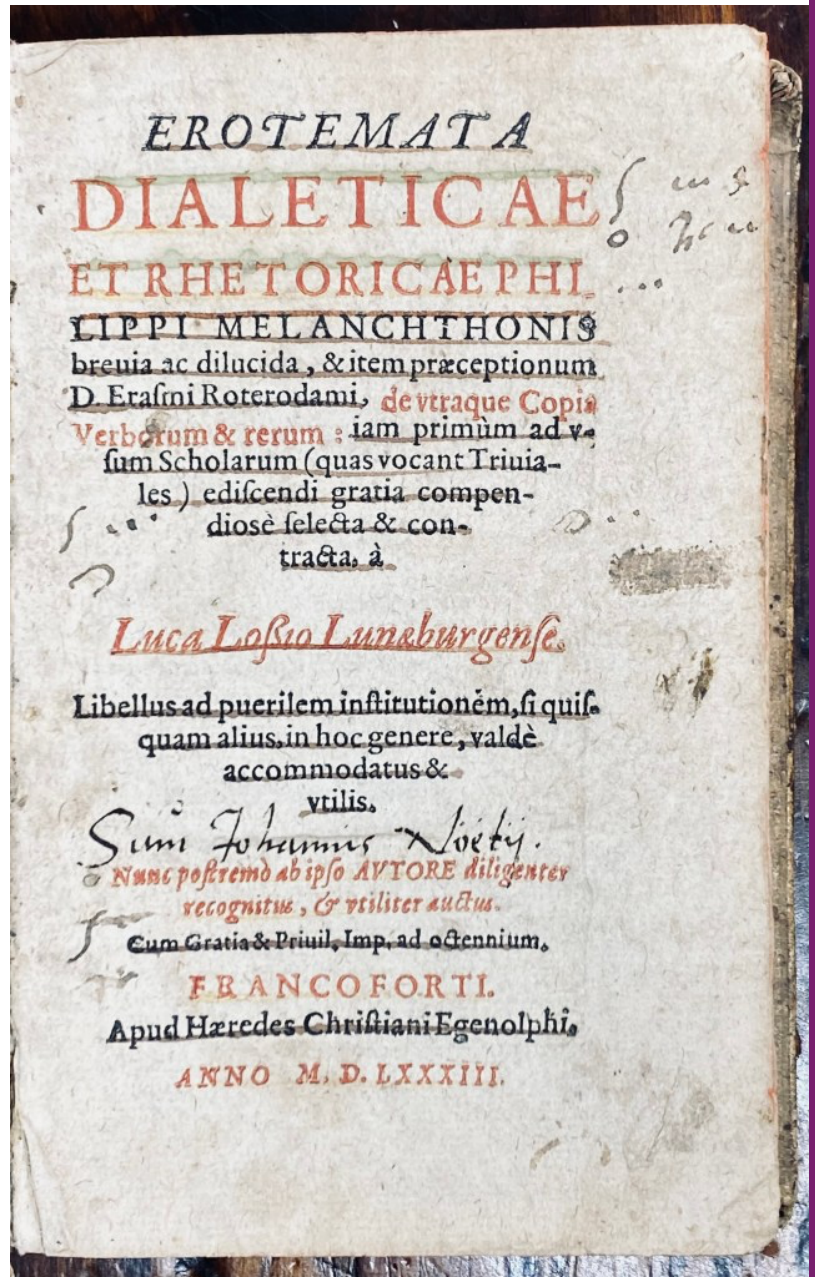 EROTEMATA
DIALETICAE
ET RHETORICAE PHI-
LIPPI MELANCHTHONIS
breuia ac dilucida, & item præceptionum
D. Eraſmi Roterodami, de vtraque Copia
Verborum & rerum : iam primùm ad v-
ſum Scholarum (quas vocant Triuia-
les) ediſcendi gratia compen-
dioſè ſelecta & con-
tracta, à
Luca Loßio Lunæburgenſe.
Libellus ad puerilem inſtitutioném, ſi quiſ-
quam alius, in hoc genere, valdè
accommodatus &
vtilis.
Sum Johannis
Nunc poſtremò ab ipſo AVTORE diligenter
recognitus, & vtiliter auctus.
Cum Gratia & Priuil. Imp. ad octennium.
FRANCOFORTI.
Apud Hæredes Chriſtiani Egenolphi.
ANNO M. D. LXXXIII.